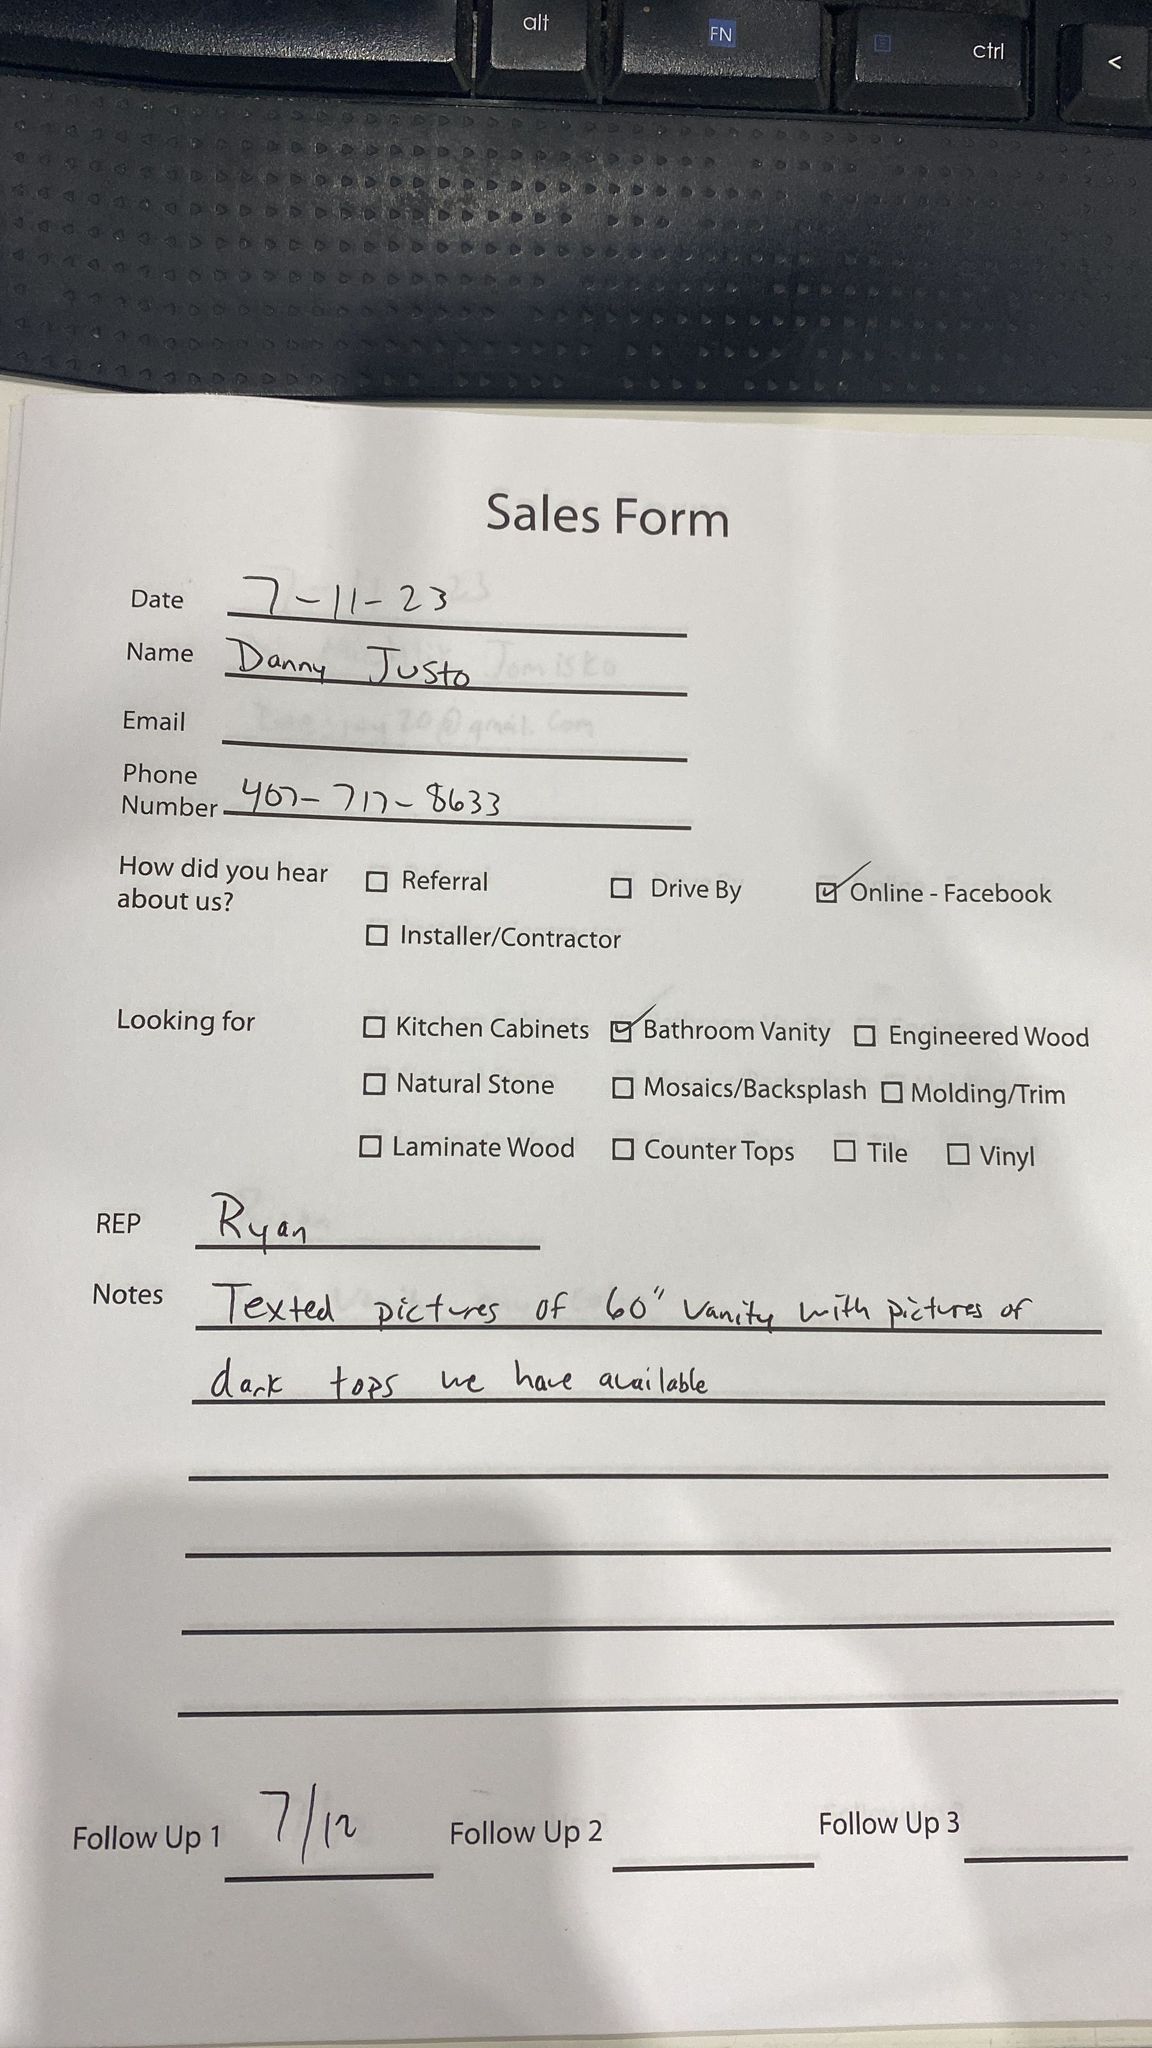 alt FN ctrl <
Sales Form
Date 7-11-23
Name Danny Justo
Email
Phone
Number 407-717-8633
How did you hear about us? ☐ Referral ☐ Drive By ☑ Online - Facebook
☐ Installer/Contractor
Looking for ☐ Kitchen Cabinets ☑ Bathroom Vanity ☐ Engineered Wood
☐ Natural Stone ☐ Mosaics/Backsplash ☐ Molding/Trim
☐ Laminate Wood ☐ Counter Tops ☐ Tile ☐ Vinyl
REP Ryan
Notes Texted pictures of 60" vanity with pictures of
dark tops we have available
Follow Up 1 7/12 Follow Up 2 Follow Up 3